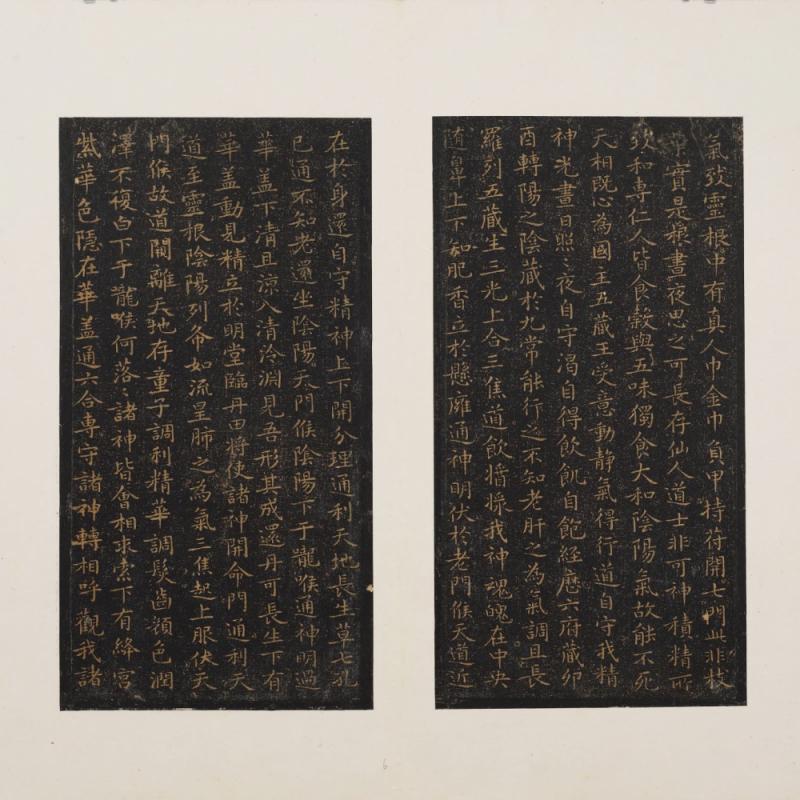 氣致靈根中有真人巾金巾負甲持符開七門此非枝
葉實是根晝夜思之可長存仙人道士非可神積精所
致和專仁人皆食穀與五味獨食大和陰陽氣故能不死
天相既心為國主五藏王受意動靜氣得行道自守我精
神光晝日照〻夜自守渴自得飲飢自飽經歷六府藏卯
酉轉陽之陰藏於九常能行之不知老肝之為氣調且長
羅列五藏生三光上合三焦道飲醬漿我神魂魄在中央
隨鼻上下知肥香立於懸癰通神明伏於老門候天道近
在於身還自守精神上下開分理通利天地長生草七孔
已通不知老還坐陰陽天門候陰陽下于嚨喉通神明過
華蓋下清且涼入清泠淵見吾形其成還丹可長生下有
華蓋動見精立於明堂臨丹田將使諸神開命門通利天
道至靈根陰陽列布如流星肺之為氣三焦起上服伏天
門候故道闚離天地存童子調利精華調髮齒顏色潤
澤不復白下于嚨喉何落〻諸神皆會相求索下有絳宮
紫華色隱在華蓋通六合專守諸神轉相呼觀我諸